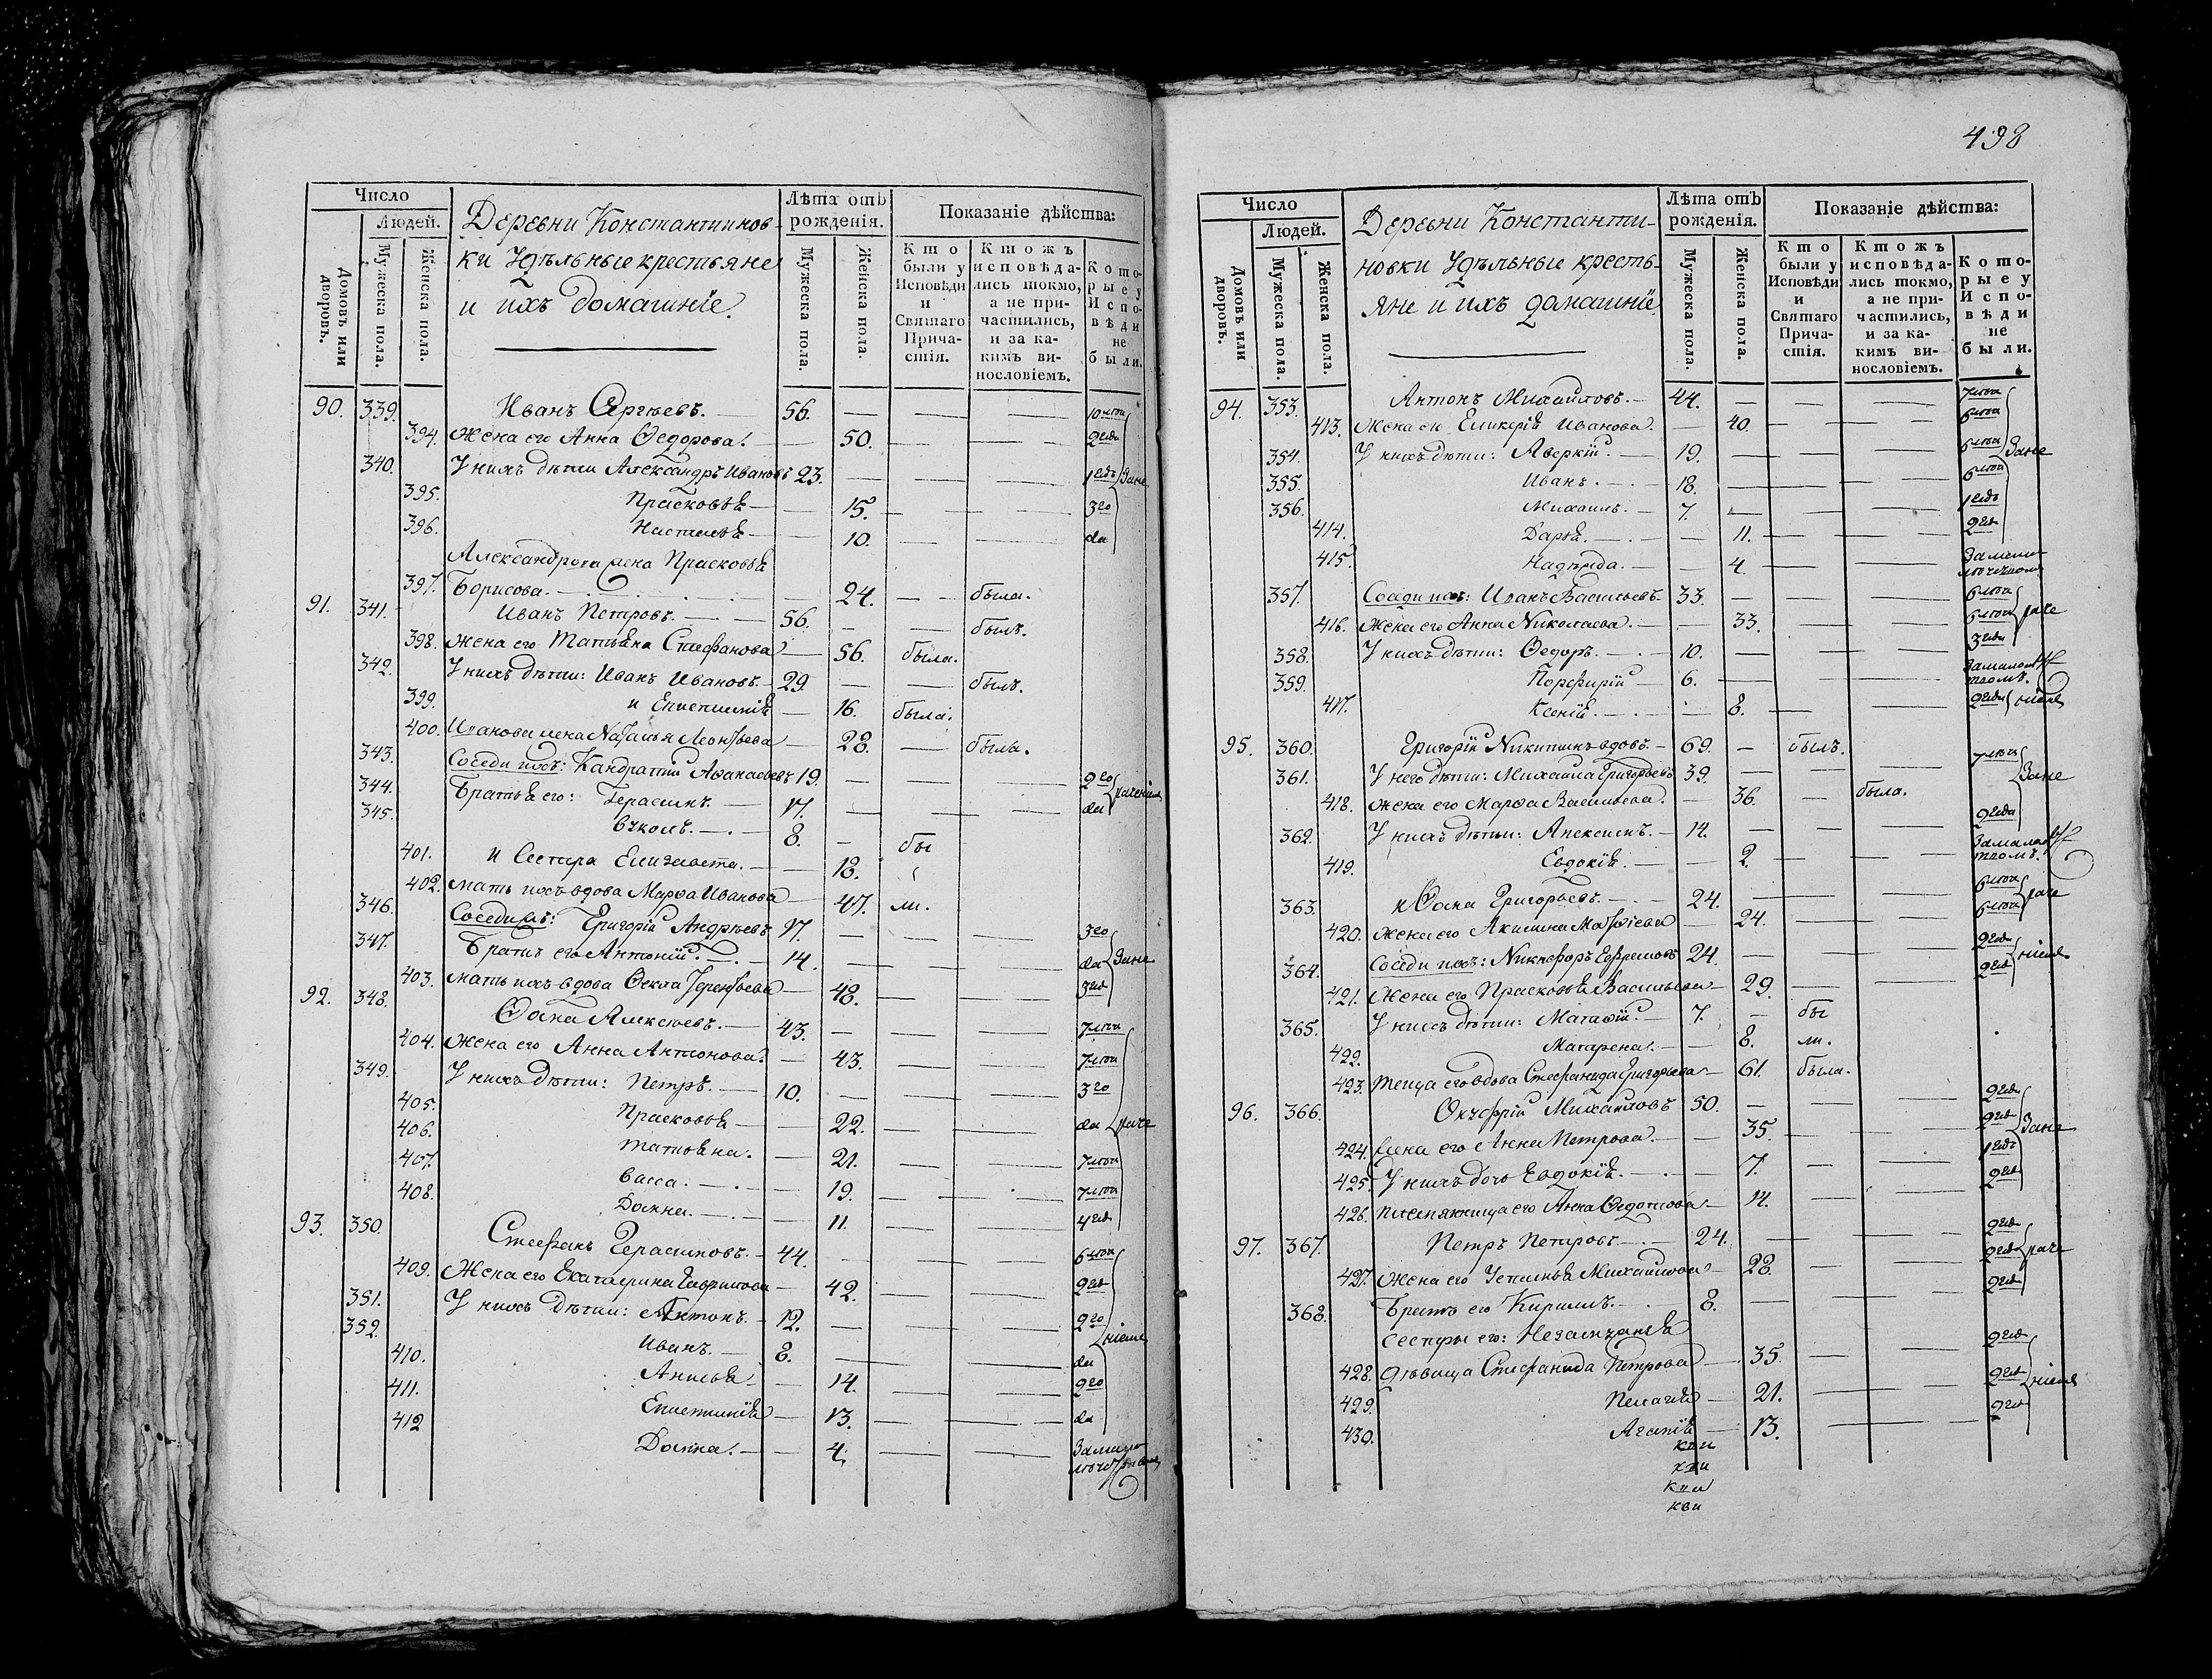 Число
Людей.
Домовъ или дворовъ.
Мужеска пола.
Женска пола.
Деревни Константинов-
ки Удѣльные крестьяне
и ихъ домашніе.
Лѣта отъ рожденія.
Мужеска пола.
Женска пола.
Показаніе дѣйства:
Кто были у Исповѣди и Святаго Прича-стія.
Ктожъ исповѣда-лись токмо, а не при-частились, и за ка-кимъ ви-нословіемъ.
Кото-рые у Испо-вѣди не были.
90. 339. Иванъ Сергѣевъ. 56.
394. Жена его Анна Ѳедорова. 50.
340. У нихъ дѣти Александръ Ивановъ 23. Зане
395. Прасковья 15.
396. Настасья 10.
Александрова жена Прасковья
397. Борисова. 24. была.
91. 341. Иванъ Петровъ. 56. былъ.
398. Жена его Татьяна Стефанова 56. была.
342. У нихъ дѣти: Иванъ Ивановъ. 29. былъ.
399. и Епистимія 16. была.
400. Иванова жена Наталья Леонтьева 28. была.
343. Соседи ихъ: Кандратій Аѳанасьевъ 19.
344. Братья его: Герасимъ. 17.
345. Вуколъ. 8. бы
401. и Сестра Елизавета. 18.
402. Мать ихъ вдова Марѳа Иванова 47. ли.
346. Соседи ихъ: Григорій Андрѣевъ 17.
347. Братъ его Антоній. 14. Зане
403. Мать ихъ вдова Ѳекла Терентьева 48.
92. 348. Ѳома Алексѣевъ. 43.
404. Жена его Анна Антонова. 43.
349. У нихъ дѣти: Петръ. 10.
405. Прасковья 22. раче
406. Татьяна. 21.
407. Васса. 19.
408. Домна. 11.
93. 350. Стефанъ Герасимовъ. 44.
409. Жена его Екатерина Гаврилова 42.
351. У нихъ дѣти: Антонъ. 12.
352. Иванъ. 8. ніемъ
410. Анисья 14.
411. Епистимія 13.
412 Домна. 4.
498
Число
Людей.
Домовъ или дворовъ.
Мужеска пола.
Женска пола.
Деревни Константи-
новки Удѣльные кресть-
яне и ихъ домашніе
Лѣта отъ рожденія.
Мужеска пола.
Женска пола.
Показаніе дѣйства:
Кто были у Исповѣди и Святаго Прича-стія.
Ктожъ исповѣда-лись токмо, а не при-частились, и за ка-кимъ ви-нословіемъ.
Кото-рые у Испо-вѣди не были.
94. 353. Антонъ Михаиловъ. 44.
413. Жена его Гликерія Иванова. 40.
354. У нихъ дѣти: Аверкій. 19. Зане
355. Иванъ. 18.
356. Михаилъ. 7.
414. Дарья. 11.
415. Надежда. 4.
357. Соседи ихъ: Иванъ Васильевъ. 33.
416. Жена его Анна Николаева. 33. раче
358. У нихъ дѣти: Ѳедоръ. 10.
359. Порфирій 6.
417. Ксенія. 8. ніемъ
95. 360. Григорій Никитинъ вдовъ. 69. былъ.
361. У него дѣти: Михаила Григорьевъ 39. Зане
418. Жена его Марѳа Васильева. 36. была.
362. У нихъ дѣти: Алексѣй. 14.
419. Евдокія. 2.
363. и Ѳома Григорьевъ. 24. раче
420. Жена его Акилина Матѳіева 24.
364. Соседи ихъ: Никифоръ Ефремовъ 24. ніемъ
421. Жена его Прасковья Васильева 29.
365. У нихъ дѣти: Матѳій. 7. бы
422. Матрена. 8. ли.
423. Теща его вдова Стефанида Григорьева 61. была.
96. 366. Онуфрій Михаиловъ 50.
424. Жена его Анна Петрова. 35. Зане
425. У нихъ дочь Евдокія. 7.
426. Племянница его Анна Ѳедотова 14.
97. 367. Петръ Петровъ 24.
427. Жена его Устинья Михаилова 28. раче
368. Братъ его Кирилъ. 8.
Сестры его: Незамужняя
428. Дѣвица Стефанида Петрова 35.
429. Пелагія 21. ніемъ
430. Агапія 13.